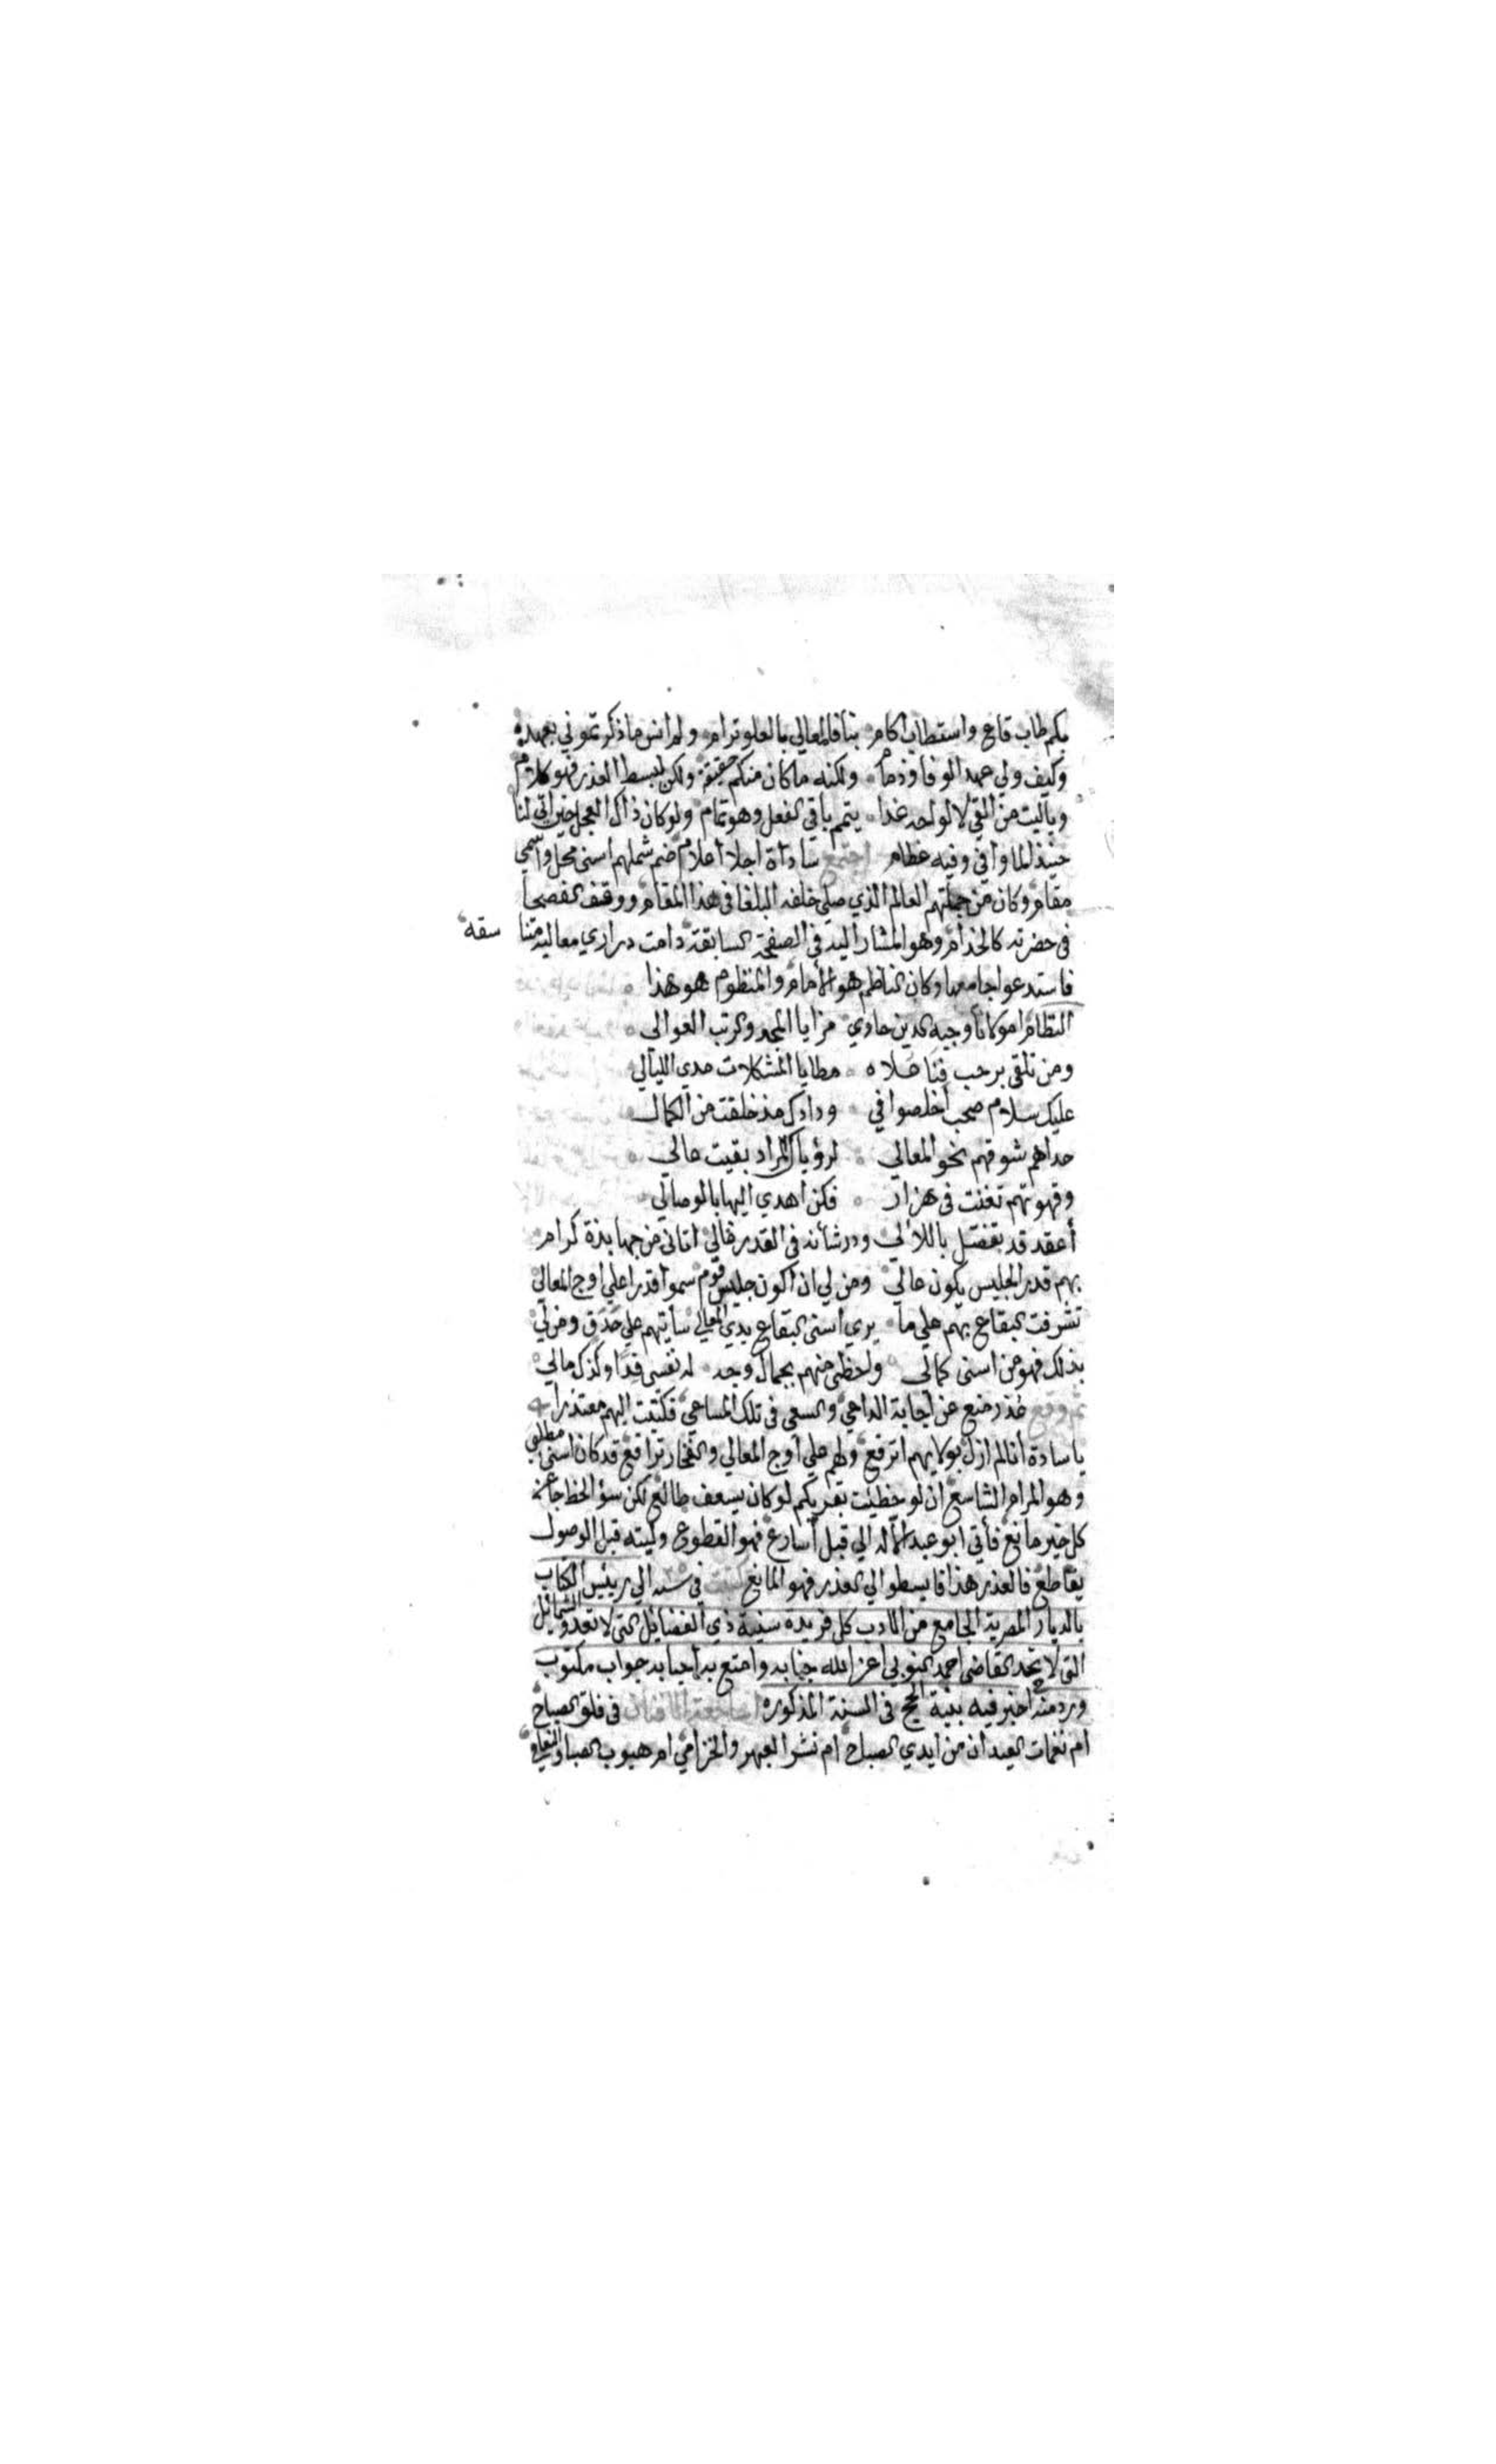 بكم طاب قاع واستطاب اكام بنا فالمعالي بالعلو ترام ولم انس ما ذكرتموني بعهده
وكيف ولي عهد الوفا وذمام ولكنه ما كان منكم حقيقة ولكن لبسط العذر فهو كلام
وياليت من القي لالواحه غدا يتمم باقي الفعل وهو تمام ولو كان ذاك العجل حين اتي لنا
حنيذ لما وافي وفيه عظام اجتمع سادة اجلا اعلام ضم شملهم اسني محل واسمي
مقام وكان من جملتهم العالم الذي صلي خلفه البلغا في هذا المقام ووقف الفصحا
في حضرته كالخدام وهو المشار اليه في الصفحة السابقة دامت دراري معاليه متنا سقه
فاستدعوا جامعها وكان الناظم هو الامام والمنظوم هو هذا
النظام امولانا وجيه الدين حاوي مزايا المجد والرتب العوالي
ومن تلقي برحب فنا علاه مطايا المشكلات مدي الليالي
عليك سلام صحب اخلصوا في ودادك مذ خلقت من الكمال
حداهم شوقهم نحو المعالي لرؤياك المراد بقيت عالي
وقهوتهم تغنت في هزار فكن اهدي اليها بالوصالي
أعقد قد تفضل باللالي ودر شأنه في القدر غالي اتاني من جهابذة كرام
بهم قدر الجليس يكون عالي ومن لي ان اكون جليس قوم سموا قدرا علي اوج المعالي
تشرفت البقاع بهم علي ما يري اسني البقاع بدي المعالي سأتيهم علي حدق ومن لي
بذلك فهو من اسني كمالي ولحظي منهم بجمال وجه له نفسي فدا وكذك مالي
ثم وقع عذر منع عن اجابة الداعي والسعي في تلك المساعي فكتبت اليهم معتذرا
يا سادة انا لم ازل بولايهم اترفع ولهم علي اوج المعالي والفخار ترافع قد كان اسني مطلبي
وهو المرام الشاسع ان لو حظيت بقربكم لو كان يسعف طالع لكن سؤ الحظ جا عن
كل خير مانع فأتي ابو عبد الاله الي قبل اسارع فهو القطوع وليته قبل الوصول
يقاطع فالعذر هذا فابسطوا لي العذر فهو المانع كتبت في سنه ٣٥ الي رييس الكتاب
بالديار المصرية الجامع من الادب كل فريدة سنية ذي الفضايل التي لا تعد والشمائل
التي لا تحد القاضي احمد اعز الله جنابه وامتع به احبابه جواب مكتوب
ورد منه اخبر فيه بنية الحج في السنة المذكوره اساجعة الافنان في فلق الصباح
ام نغمات العيدان من ايدي الصباح ام نشر العبهر والخزامي ام هبوب الصبا